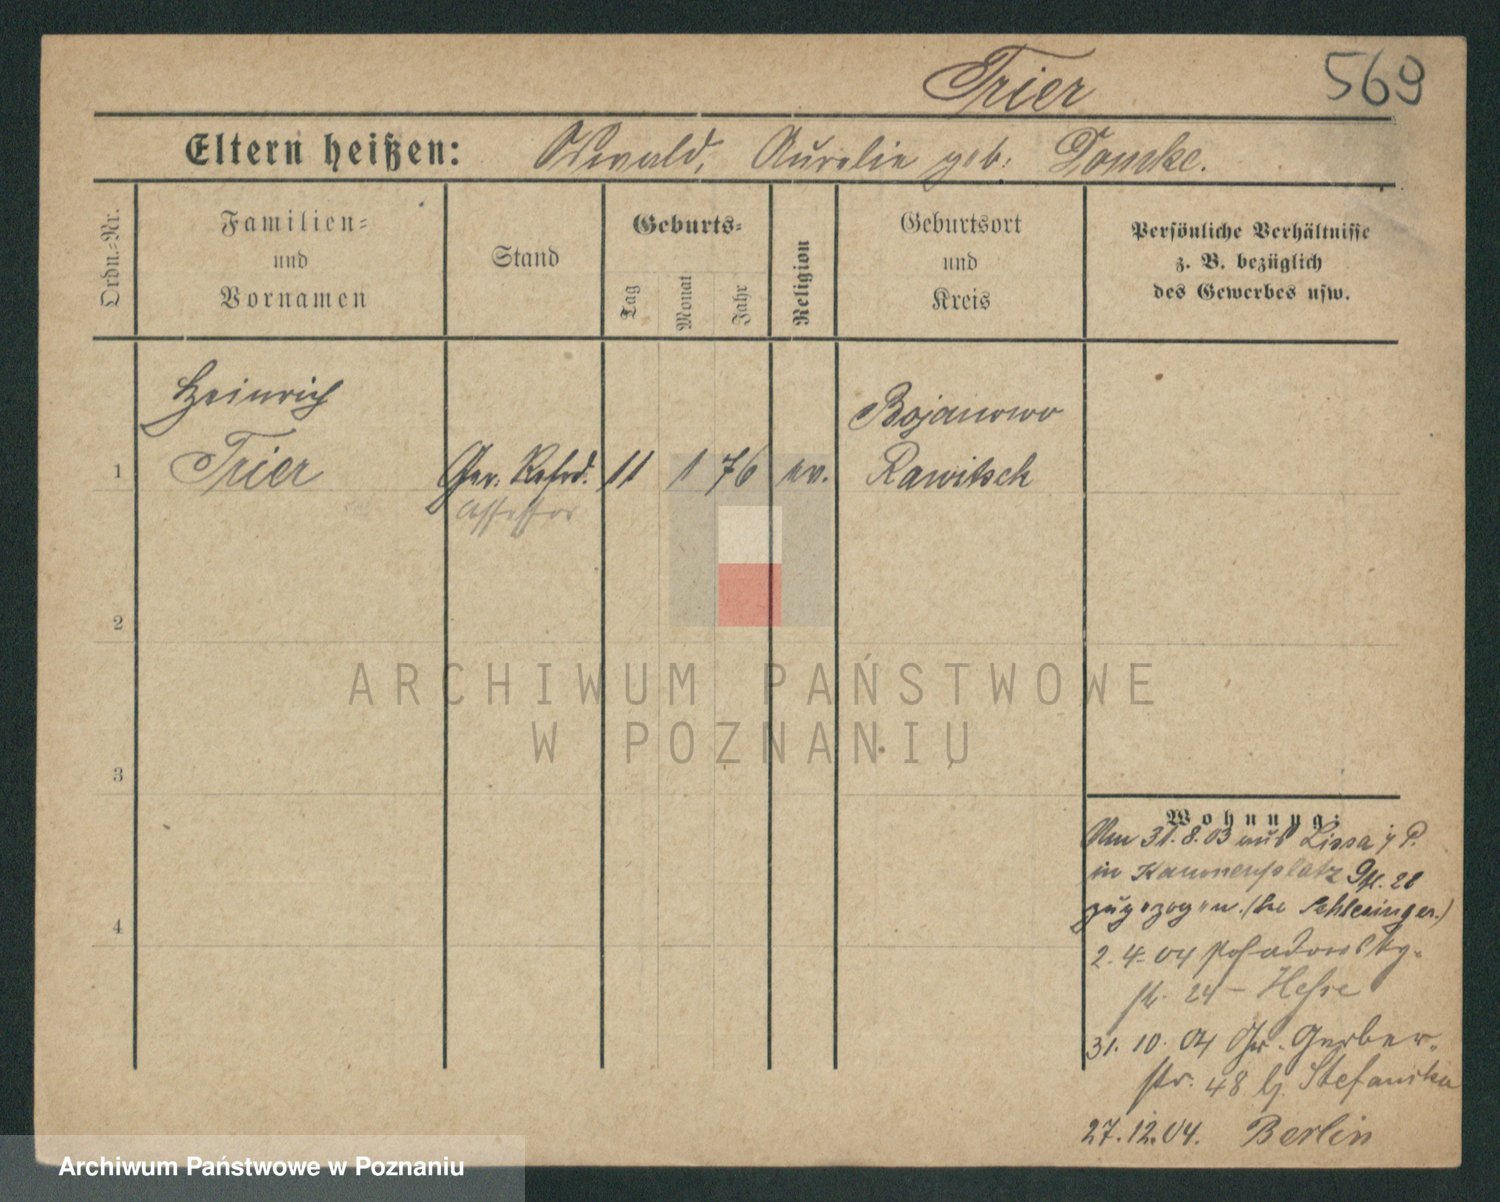 Trier
569
Eltern heißen: Ewald, Aurelie geb. Domke.
Ordn.=Nr.
Familien=
und
Vornamen
Stand
Geburts=
Tag
Monat
Jahr
Religion
Geburtsort
und
Kreis
Persönliche Verhältnisse
z. B. bezüglich
des Gewerbes usw.
Heinrich
Bojanowo
1 Trier Ger. Refrd. 11 1 76 ev. Rawitsch
Assessor
2
3
4
ARCHIWUM PAŃSTWOWE
W POZNANIU
Wohnung:
Am 31.8.03 aus Lissa i/P.
in Kanonenplatz
zugezogen. (bei Schlesinger.)
2. 4. 04 Posadowsky-
str. 24 - Hesse
31. 10. 04 Gr. Gerber-
str. 48 b/ Stefanska
27. 12. 04. Berlin
Archiwum Państwowe w Poznaniu